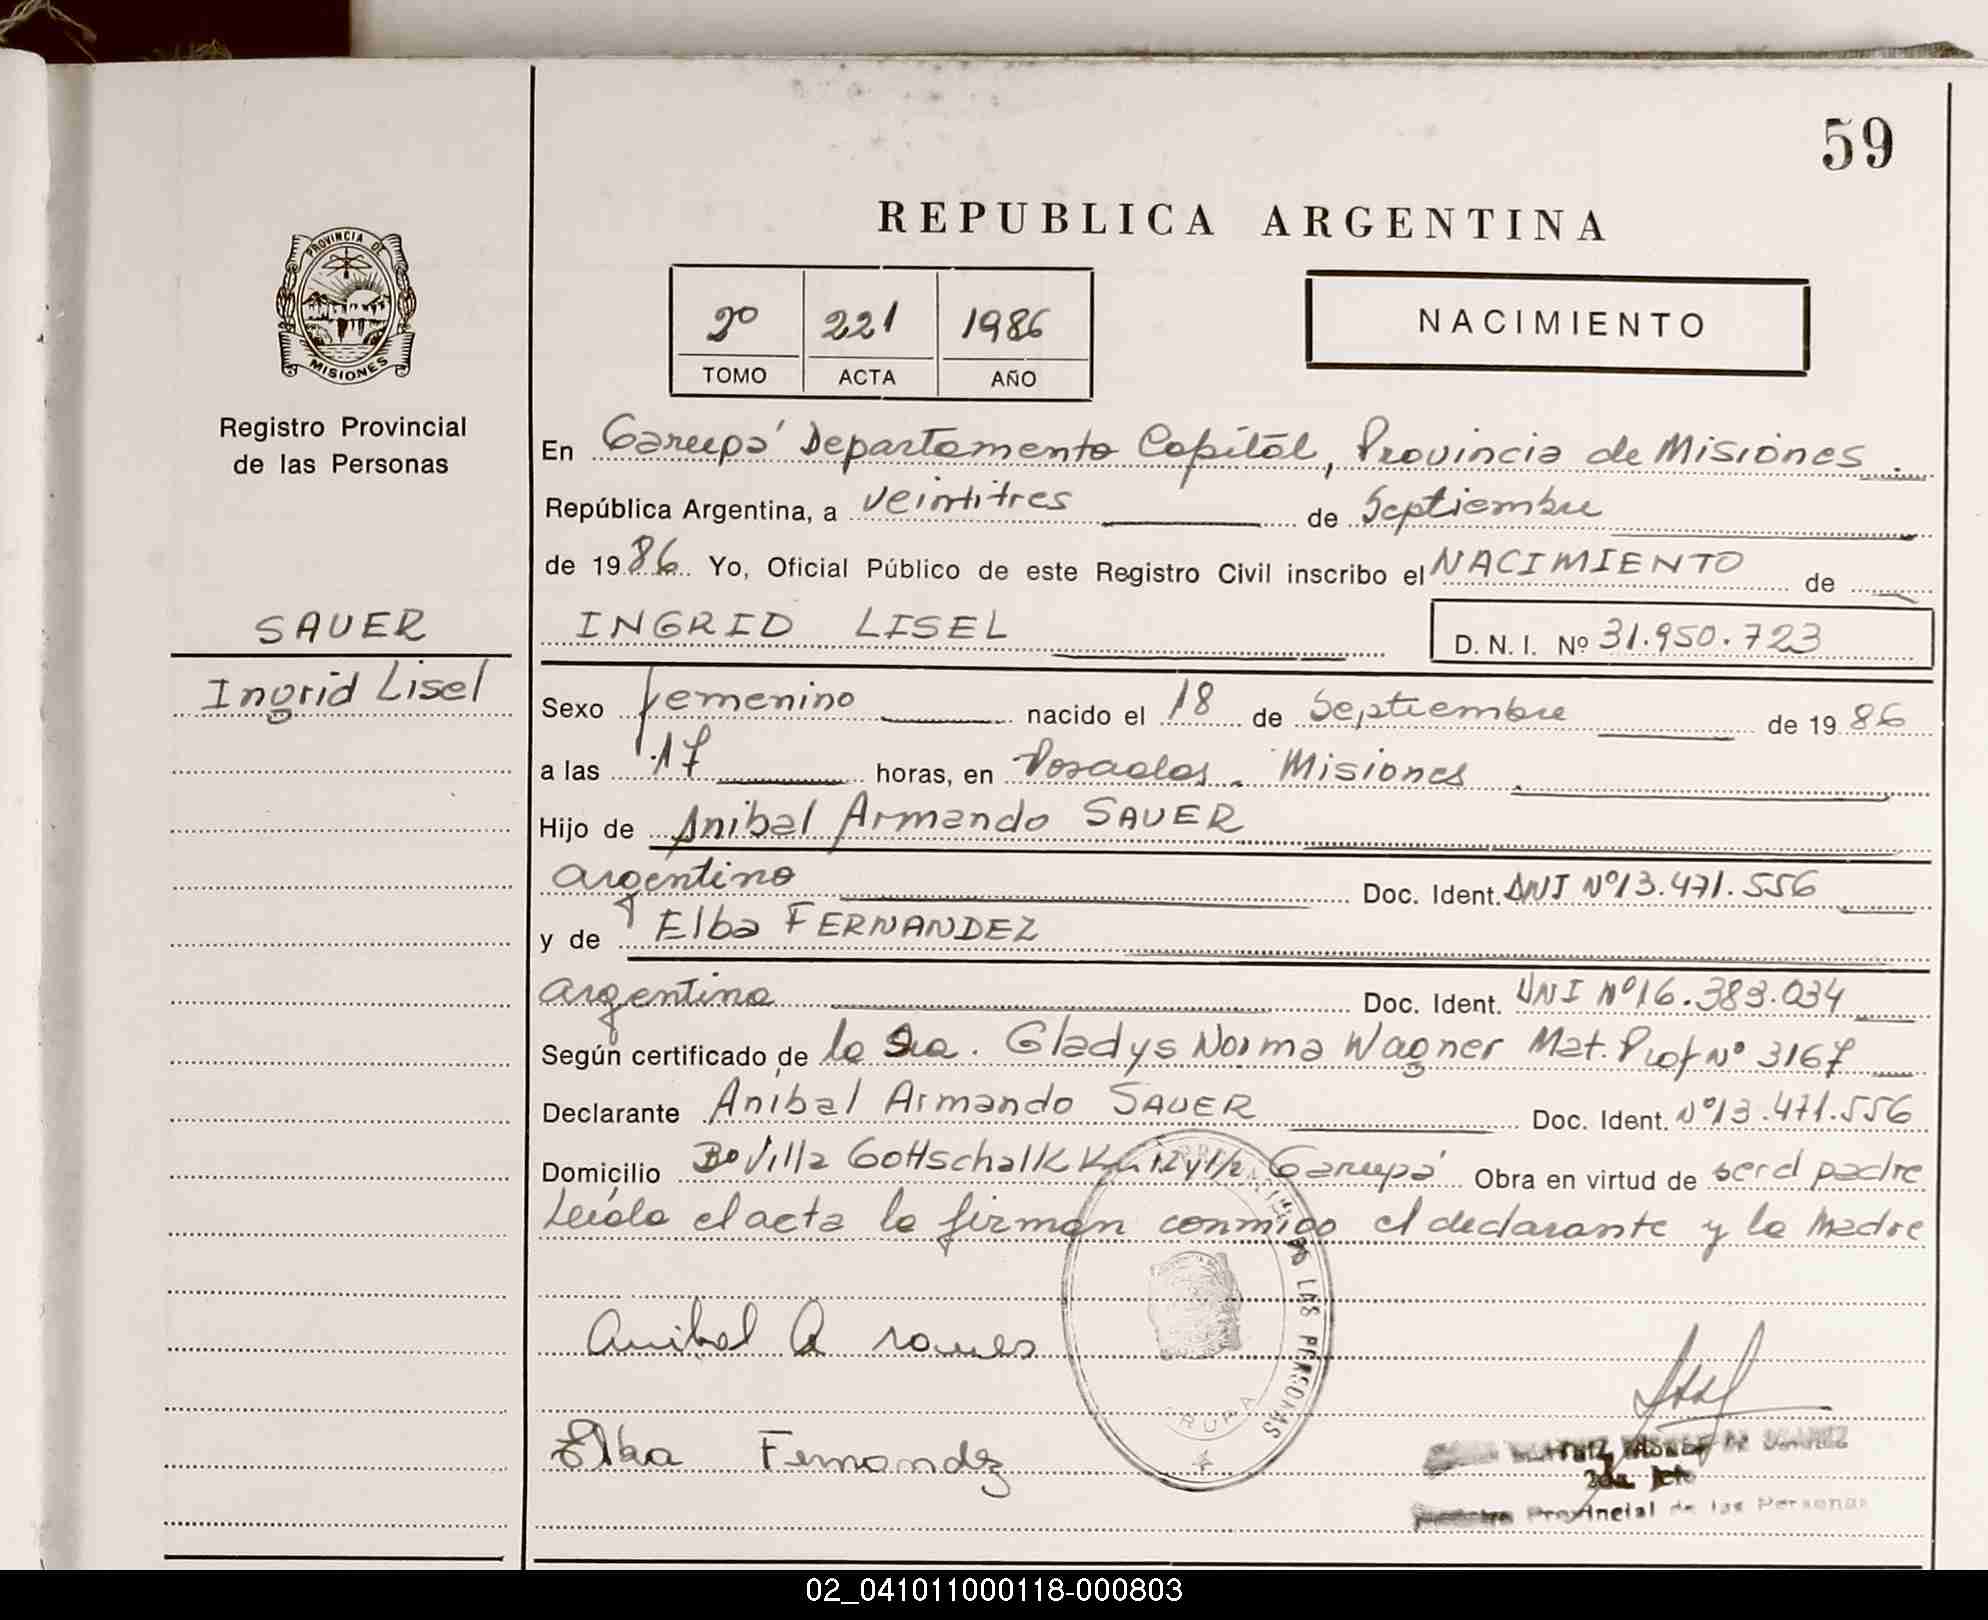 59
PROVINCIA DE
MISIONES
REPUBLICA ARGENTINA
2º 221 1986
TOMO ACTA AÑO
NACIMIENTO
Registro Provincial
de las Personas
En Garupá Departamento Capital, Provincia de Misiones
República Argentina, a veintitres de Septiembre
de 1986 Yo, Oficial Público de este Registro Civil inscribo el NACIMIENTO de
SAUER
Ingrid Lisel
INGRID LISEL D. N. I. Nº 31.950.723
Sexo femenino nacido el 18 de Septiembre de 1986
a las 17 horas, en Posadas. Misiones
Hijo de Anibal Armando SAUER
argentino Doc. Ident. DNI Nº13.471.556
y de Elba FERNANDEZ
argentina Doc. Ident. DNI Nº16.383.034
Según certificado de la Sra. Gladys Norma Wagner Mat. Prof Nº 3167
Declarante Anibal Armando SAUER Doc. Ident. Nº13.471.556
Domicilio Bº Villa Gottschalk Garupá Obra en virtud de ser el padre
Leída el acta la firman conmigo el declarante y la madre
LAS PERSONAS
Anibal A
Elba Fernandez
Provincial de las Personas
02_041011000118-000803